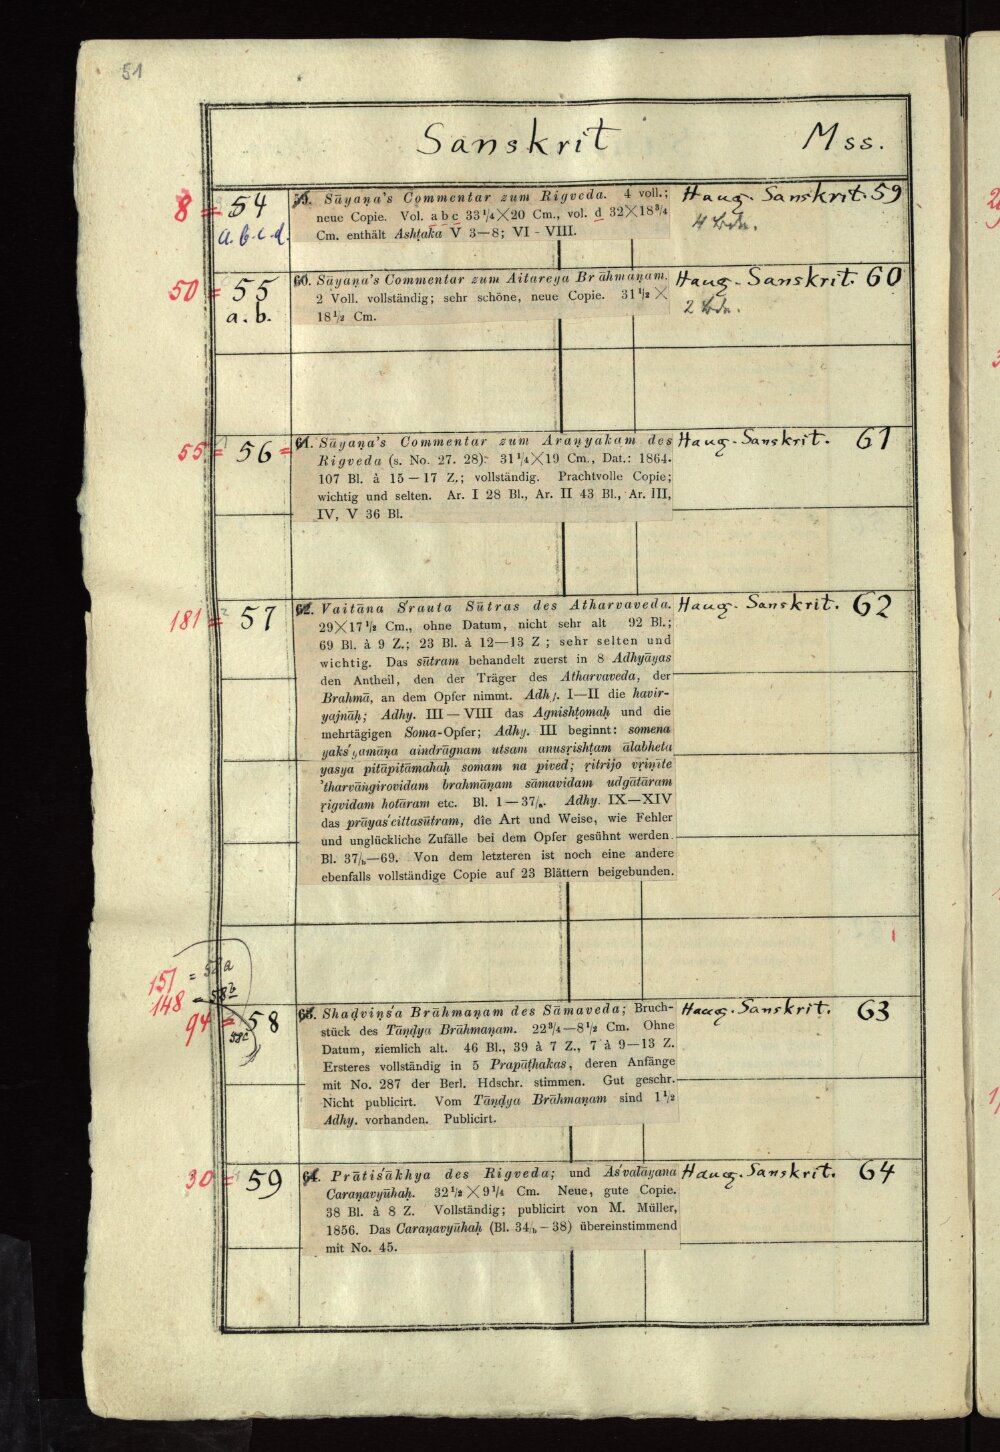 51
Sanskrit Mss.
8 = 54
a. b. c. d.
59. Sāyaṇa's Commentar zum Rigveda. 4 voll.;
neue Copie. Vol. a b c 33 1/4 × 20 Cm., vol. d 32 × 18 3/4
Cm. enthält Ashṭaka V 3—8; VI - VIII.
Haug. Sanskrit. 59
4 Bde.
50 = 55
a. b.
60. Sāyaṇa's Commentar zum Aitareya Brāhmaṇam.
2 Voll. vollständig; sehr schöne, neue Copie. 31 1/2 ×
18 1/2 Cm.
Haug. Sanskrit. 60
2 Bde.
55 = 56 =
61. Sāyaṇa's Commentar zum Araṇyakam des
Rigveda (s. No. 27. 28). 31 1/4 × 19 Cm., Dat.: 1864.
107 Bl. à 15 — 17 Z.; vollständig. Prachtvolle Copie;
wichtig und selten. Ar. I 28 Bl., Ar. II 43 Bl., Ar. III,
IV, V 36 Bl.
Haug. Sanskrit. 61
181 = 57
62. Vaitāna S'rauta Sūtras des Atharvaveda.
29 × 17 1/2 Cm., ohne Datum, nicht sehr alt 92 Bl.;
69 Bl. à 9 Z.; 23 Bl. à 12—13 Z ; sehr selten und
wichtig. Das sūtram behandelt zuerst in 8 Adhyāyas
den Antheil, den der Träger des Atharvaveda, der
Brahmā, an dem Opfer nimmt. Adhy. I—II die havir-
yajnāḥ; Adhy. III — VIII das Agnishṭomaḥ und die
mehrtägigen Soma-Opfer; Adhy. III beginnt: somena
yaks'yamāṇa aindrāgnam utsam anusṛishṭam ālabheta
yasya pitāpitāmahaḥ somam na pived; ṛitvijo vṛiṇīte
'tharvāngirovidam brahmāṇam sāmavidam udgātāram
ṛigvidam hotāram etc. Bl. 1 — 37/a. Adhy. IX—XIV
das prāyas'cittasūtram, die Art und Weise, wie Fehler
und unglückliche Zufälle bei dem Opfer gesühnt werden
Bl. 37/b—69. Von dem letzteren ist noch eine andere
ebenfalls vollständige Copie auf 23 Blättern beigebunden.
Haug. Sanskrit. 62
151 = 58a
148 = 58b
94 = 58
58c
63. Shaḍviṇs'a Brāhmaṇam des Sāmaveda; Bruch-
stück des Tāṇḍya Brāhmaṇam. 22 3/4—8 1/2 Cm. Ohne
Datum, ziemlich alt. 46 Bl., 39 à 7 Z., 7 à 9—13 Z.
Ersteres vollständig in 5 Prapāṭhakas, deren Anfänge
mit No. 287 der Berl. Hdschr. stimmen. Gut geschr.
Nicht publicirt. Vom Tāṇḍya Brāhmaṇam sind 1 1/2
Adhy. vorhanden. Publicirt.
Haug. Sanskrit. 63
30 = 59
64. Prātis'ākhya des Rigveda; und As'valāyana
Caraṇavyūhaḥ. 32 1/2 × 9 1/4 Cm. Neue, gute Copie.
38 Bl. à 8 Z. Vollständig; publicirt von M. Müller,
1856. Das Caraṇavyūhaḥ (Bl. 34/b – 38) übereinstimmend
mit No. 45.
Haug. Sanskrit. 64